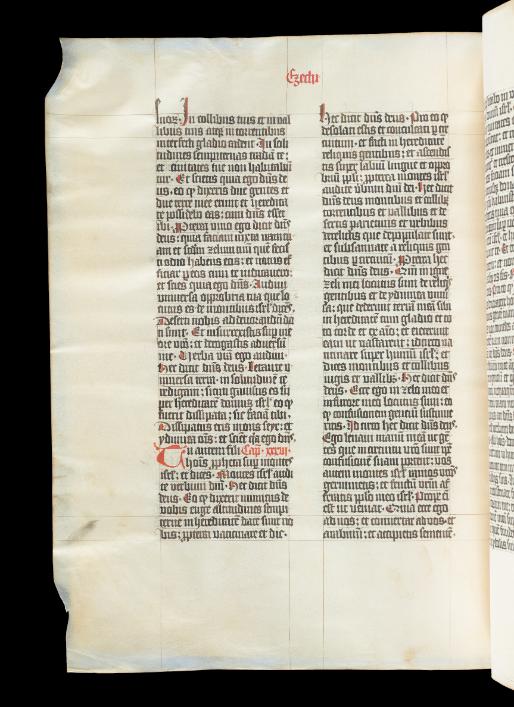 Ezechi
suos. In collibus tuis et in val
libus tuis atq; in torrentibus
interfecti gladio cadent. In soli
tudines sempiternas tradā te:
et ciuitates tue non habitabūt
tur. Et scietis quia ego dn̄s de
us, eo q dixeris due gentes et
due terre mee erunt et heredita
te possidebo eas: cum dn̄s esset
ibi. Propterea viuo ego dicit dn̄s
deus: quia faciam iuxta iram tu
am et scdm zelum tuū quē fecisti
odio habens eos: et notus ef
ficiar per eos cum te iudicauero:
et scies quia ego dn̄s. Audiui
vniuersa opprobria tua que lo
cutus es de montibus isrl̄ dicēs.
Deserti nobis ad deuorandū da
ti sunt. Et insurrexistis sup me
ore vr̄o: et derogastis aduersū
me. Verba vr̄a ego audiui.
Hec dicit dn̄s deus. Letante v
niuersa terra: in solitudinē te
redigam: sicuti gauisus es su
per hereditatē domus isrl̄ eo q
fuerit dissipata: sic faciā tibi.
Dissipatus eris mons seyr: et
ydumea oīs: et sciēt q̄a ego dn̄s.
Tu autem fili Cap. xxxvi
hoīs, ppheta sup montes
isrl̄: et dices. Montes isrl̄ audi
te verbum dn̄i. Hec dicit dn̄s
deus. Eo q dixerit inimicus de
vobis euge altitudines sempi
terne in hereditatē date sunt no
bis: ppterea vaticinare et dic.
Hec dicit dn̄s deus. Pro eo q
desolati estis et conculcati p cir
cuitum: et facti in hereditatē
reliquis gentibus: et ascendis
tis super labiū lingue et oppro
briū ppl̄i: ppterea montes isrl̄
audite verbum dn̄i dei. Hec dicit
dn̄s deus montibus et collibus
torrentibus et vallibus et de
sertis parietinis et vrbibus
derelictis que depopulate sunt
et subsannate a reliquis gen
tibus p circuitū. Propterea hec
dicit dn̄s deus. Qm̄ in igne
zeli mei locutus sum de reliqs
gentibus et de ydumea vniu
sa: que dederunt terrā meā sibi
in hereditatē cum gaudio et to
to corde et ex aīo: et eiecerunt
eam ut vastarent: idcirco va
ticinare super humū isrl̄: et
dices montibus et collibus
iugis et vallibꝫ. Hec dicit dn̄s
deus. Ecce ego in zelo meo et
in furore meo locutus sum: eo
q confusionem gentiū sustinue
ritis. Idcirco hec dicit dn̄s deꝰ.
Ego leuaui manū meā ut gē
tes que in circuitu vr̄o sunt ip̄e
confusionē suam portent: vos
autem montes isrl̄ ramos vr̄os
germinetis: et fructū vr̄m af
feratis pplo meo isrl̄. Prope ei
est ut veniat. Quia ecce ego
ad vos: et conuertar ad vos: et
arabimini: et accipietis sementē.